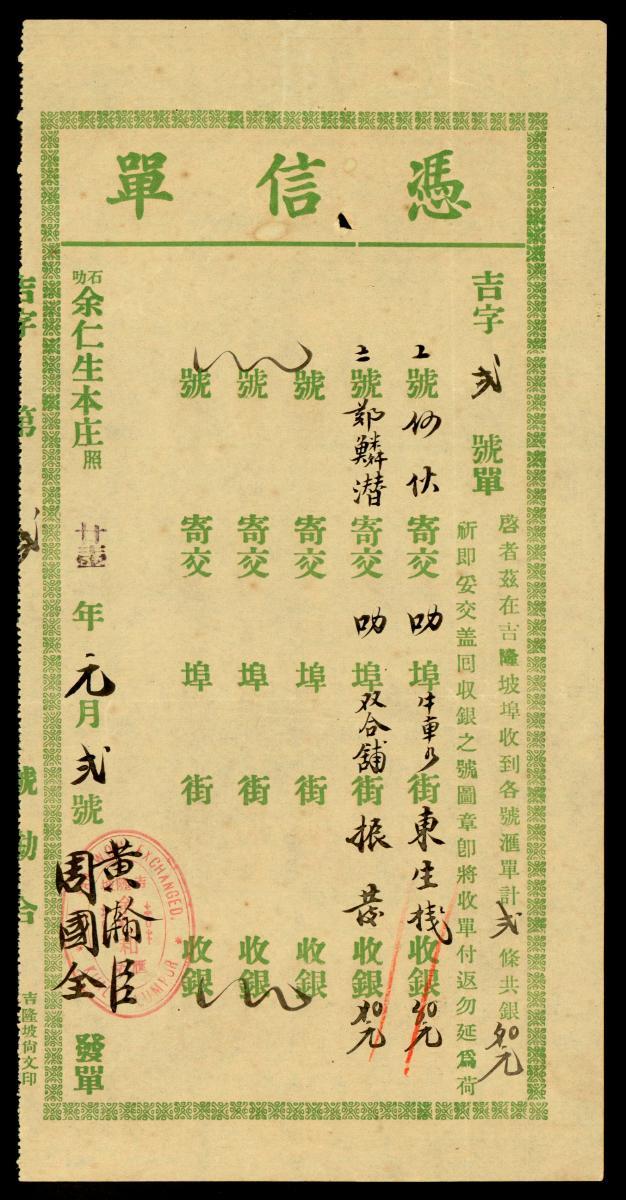 憑信單
吉字 弍 號單
啓者茲在吉隆坡埠收到各號滙單計 弍 條共銀
祈即妥交盖回收銀之號圖章即將收單付返勿延爲荷
號 何伏 寄交 叻 埠 牛車水 街 東生棧 收銀
二 號 鄭鱗潜 寄交 叻 埠 双合舖 街 振 收銀
號 寄交 埠 街 收銀
號 寄交 埠 街 收銀
號 寄交 埠 街 收銀
石叻余仁生本庄照 廿壹 年 元 月 弍 號 黃瀚臣 周國全 發單
EXCHANGED.
吉字 第 弍 號勘合
吉隆坡尙文印